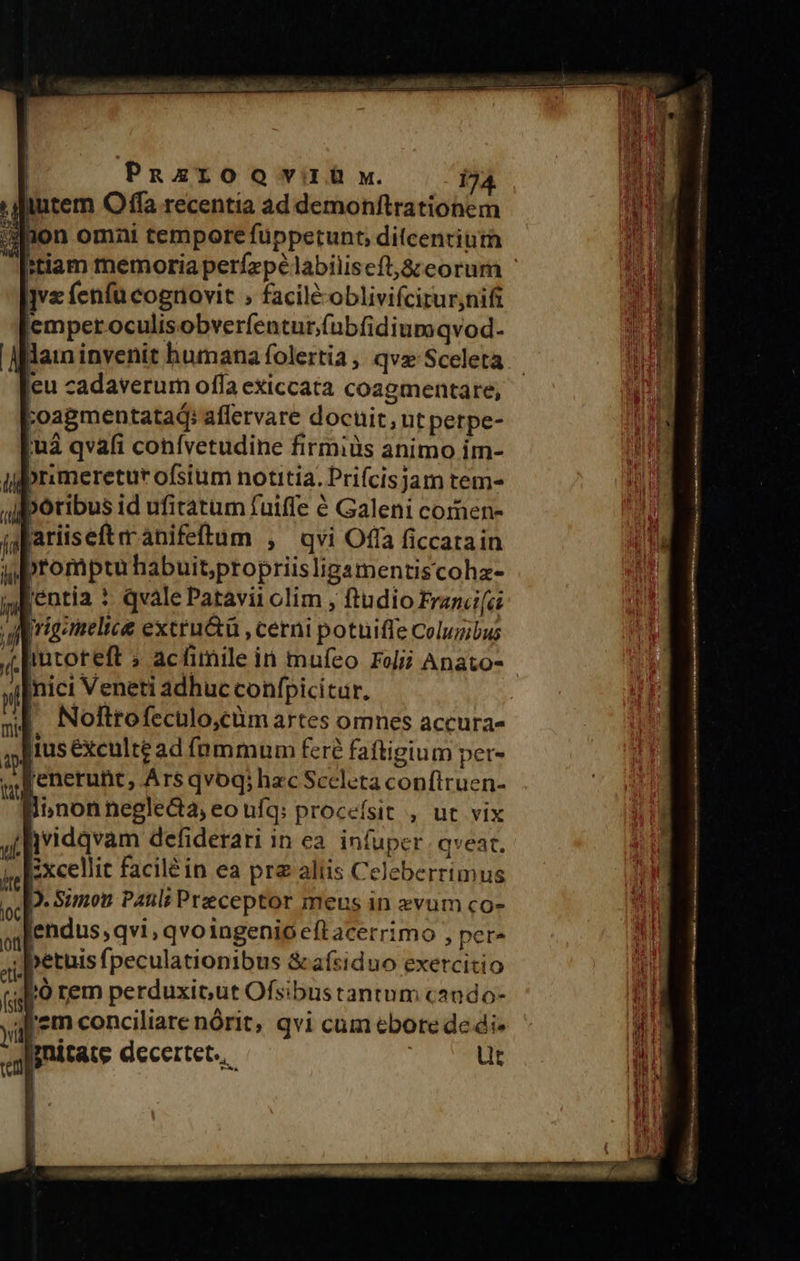 PRÆLOQVIUM. 174
autem Oſſa recentia ad demonſtrationem
non omni tempore ſuppetunt, diſcentium
etiam memoria perſæpè labilis eſt, & eorum
qvæ ſenſu cognovit, facilè obliviſcitur, niſi
ſemper oculis obverſentur, ſubſidium qvod-
dam invenit humana ſolertia, qvæ Sceleta
ſeu cadaverum oſſa exiccata coagmentare,
coagmentataq́; aſſervare docuit, ut perpe-
tuâ qvaſi conſvetudine firmiùs animo im-
primeretur oſsium notitia. Priſcis jam tem-
poribus id uſitatum fuiſſe è Galeni comen-
tariis eſt manifeſtum, qvi Oſſa ſiccata in
promptu habuit, propriis ligamentis cohæ-
rentia: qvale Patavii olim, ſtudio Franciſci
Frigimelicæ extructū, cerni potuiſſe Columbus
autor eſt; ac ſimile in muſeo Folii Anato-
mici Veneti adhuc conſpicitur.
Noſtro ſeculo, cùm artes omnes accura-
tius excultę ad ſummum ferè faſtigium per-
venerunt, Ars qvoq; hæc Sceleta conſtruen-
di, non neglecta, eo uſq; proceſsit, ut vix
qvidqvam deſiderari in ea inſuper qveat.
Excellit facilè in ea præ aliis Celeberrimus
D. Simon Pauli Præceptor meus in ævum co-
lendus, qvi, qvo ingenio eſt acerrimo, per-
petuis ſpeculationibus & aſsiduo exercitio
eò rem perduxit, ut Oſsibus tantum cando-
rem conciliare nôrit, qvi cum ebore de di-
gnitate decertet.
Ut